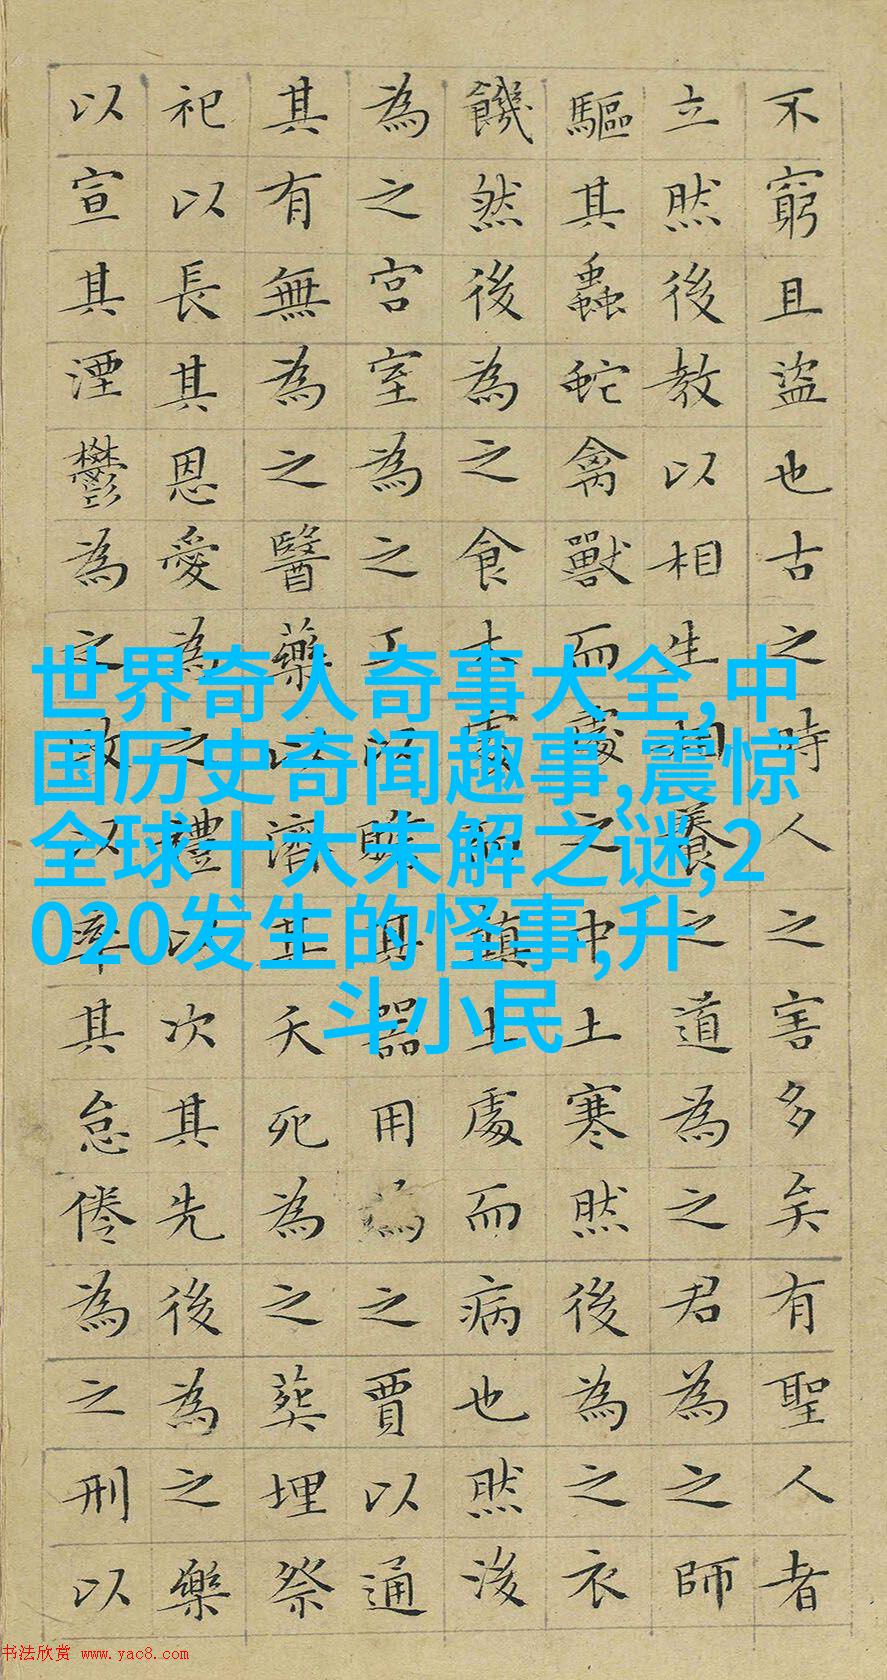 不窮且盜也古之時人之害多矣有聖人者
立然後教以相生相養之道為之君為之師
驅其蟲蛇禽獸而處之中土寒然後為之衣
饑然後為之食木處而顛土處而病也然後
為之宮室為之工以贍其器用為之賈以通
其有無為之醫藥以濟其夭死為之葬埋祭
祀以長其恩愛為之禮以次其先後為之樂
以宣其湮鬱為之政以率其怠倦為之刑以
世界奇人奇事大全,中
国历史奇闻趣事,震惊
全球十大未解之谜,2
020发生的怪事,升
斗小民
书法欣赏 www.yac8.com